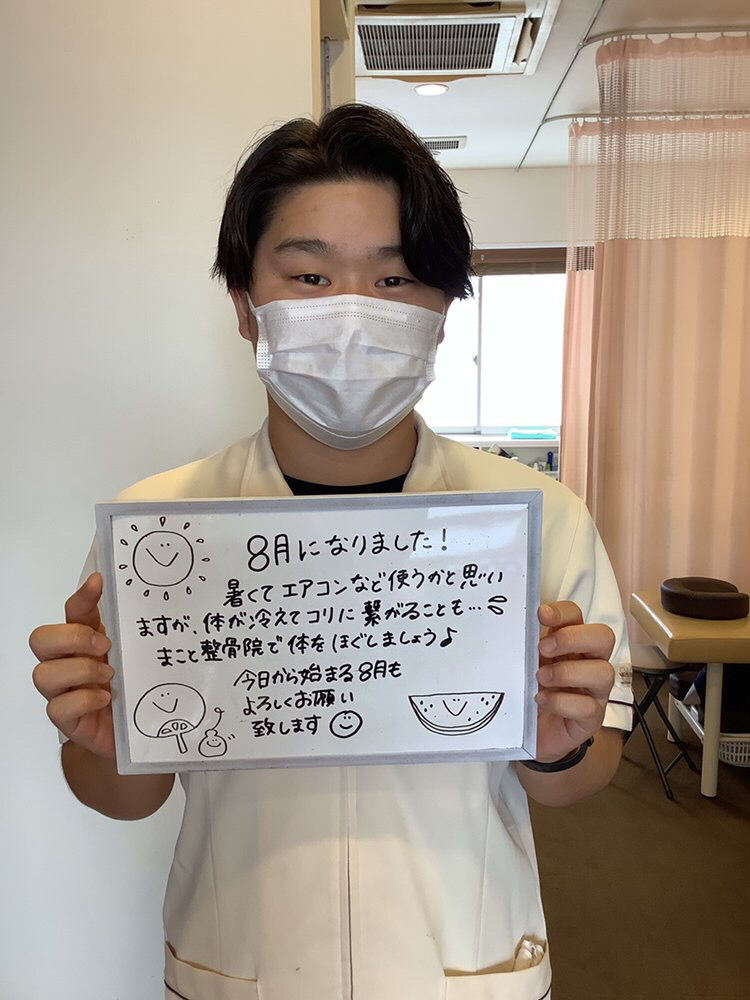 8月になりました!
暑くてエアコンなど使うかと思い
ますが、体が冷えてコリに繋がることも…
まこと整骨院で体をほぐしましょう♪
今日から始まる8月も
よろしくお願い
致します